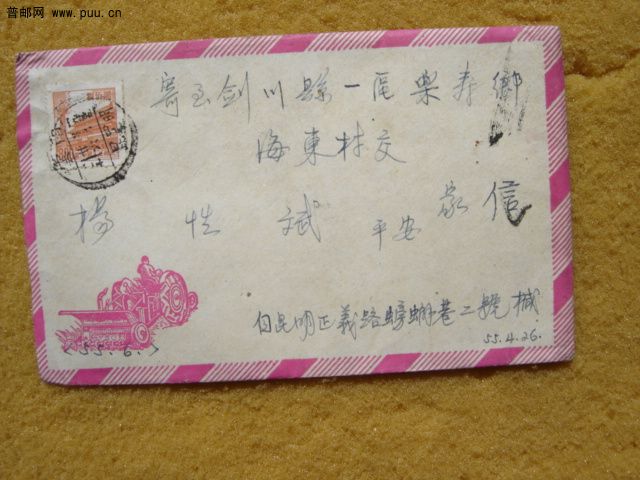 普邮网 www.puu.cn
寄至剑川縣一區樂寿鄉
海東村交
楊 惟 斌 平安家信
自昆明正義路螃蟹巷二號械
55.4.26.
<55.6.>